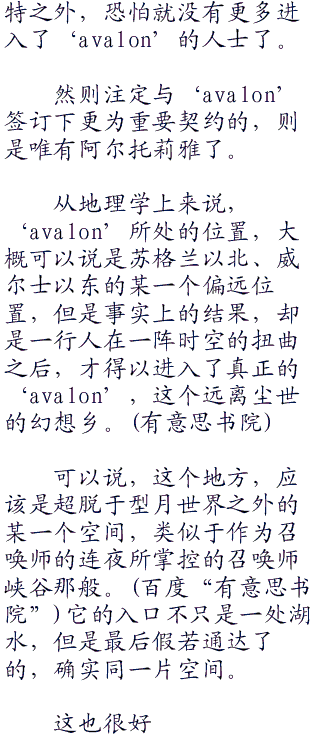 特之外，恐怕就没有更多进
入了‘avalon’的人士了。
然则注定与‘avalon’
签订下更为重要契约的，则
是唯有阿尔托莉雅了。
从地理学上来说，
‘avalon’所处的位置，大
概可以说是苏格兰以北、威
尔士以东的某一个偏远位
置，但是事实上的结果，却
是一行人在一阵时空的扭曲
之后，才得以进入了真正的
‘avalon’，这个远离尘世
的幻想乡。(有意思书院)
可以说，这个地方，应
该是超脱于型月世界之外的
某一个空间，类似于作为召
唤师的连夜所掌控的召唤师
峡谷那般。(百度“有意思书
院”)它的入口不只是一处湖
水，但是最后假若通达了
的，确实同一片空间。
这也很好